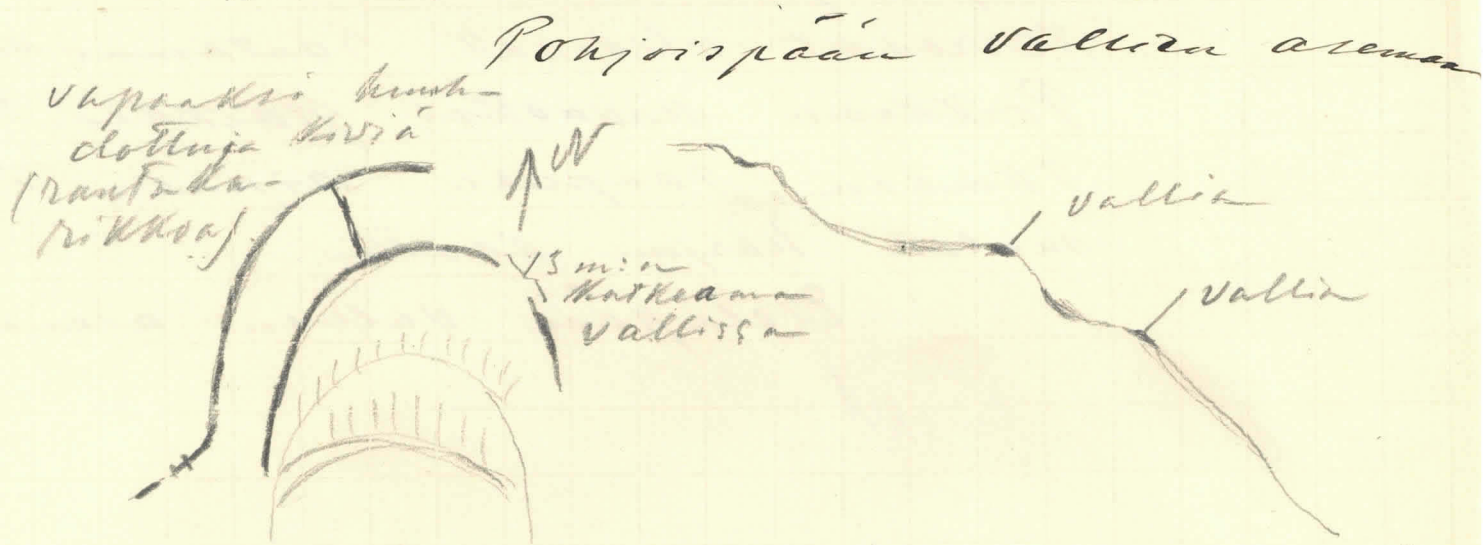 Pohjoispään vallien asemaa
vapaaksi huuh-
dottuja kiviä
(rantaka-
rikkoa)
N
3 m:n
katkeama
vallissa
vallia
vallia